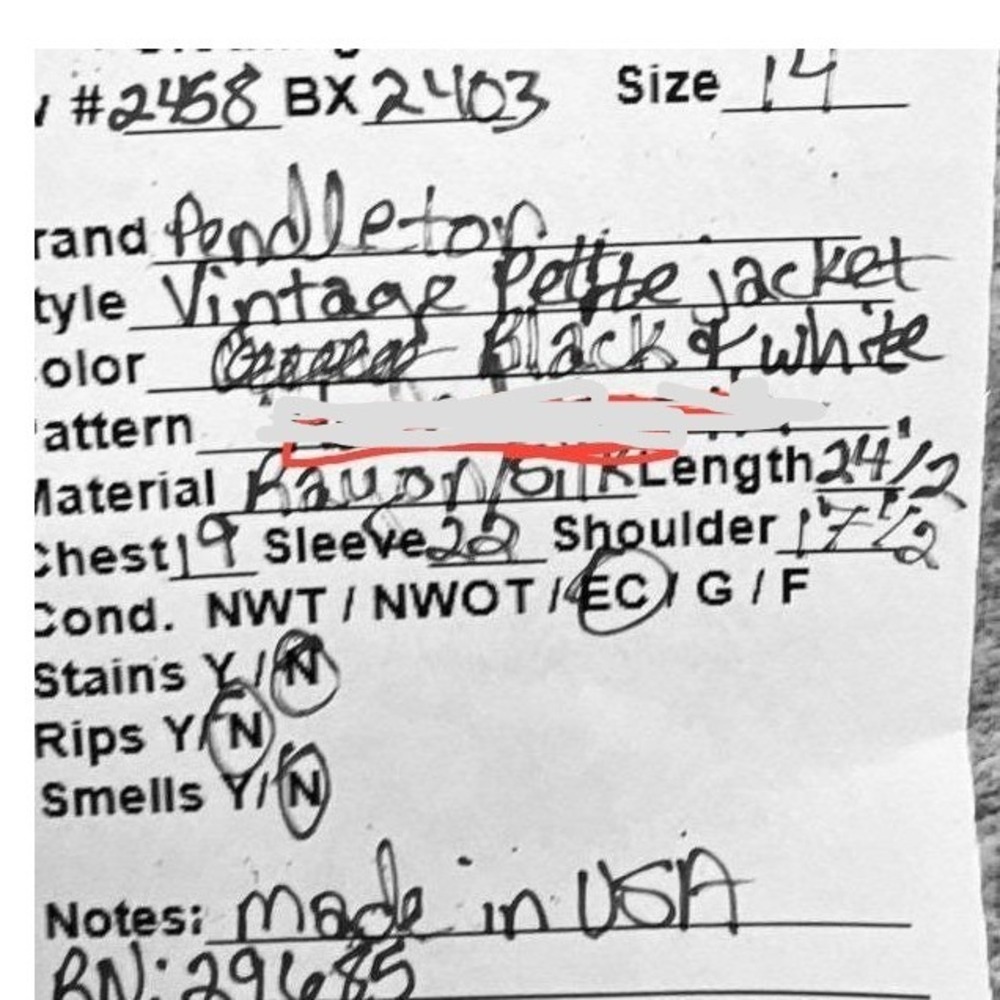 #2458 BX 2403 Size 14
rand Pendleton
tyle Vintage Petite jacket
olor Black & white
attern
Material Rayon/Silk Length 24 1/2
Chest 19 Sleeve 22 Shoulder 17 1/2
Cond. NWT / NWOT / EC / G / F
Stains Y / N
Rips Y/ N
Smells Y/ N
Notes: made in USA
RN: 29685